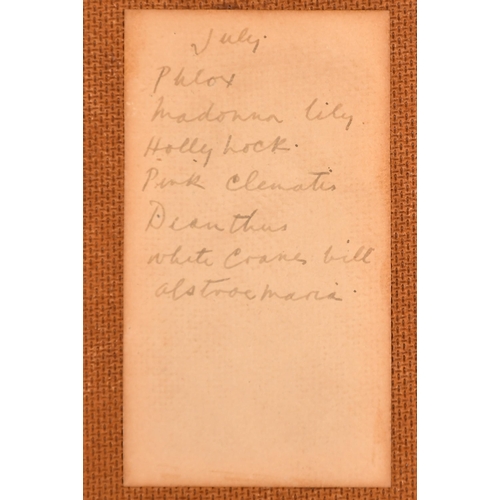 July.
Phlox
Madonna lily.
Holly hock.
Pink Clematis
Deanthus
white Cranes bill
alstroemaria.